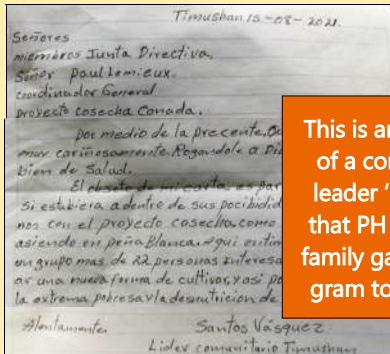 Timushan 15-08-2021.
Señores
miembros Junta Directiva,
Señor Paul Lemieux.
coordinador General
proyecto cosecha Canada.
por medio de la precente,
muy cariñosamente. Rogandole a
bien de Salud.
El obseto de mi carta es par
Si estubiera adentro de sus pocibidid
nos con el proyecto cosecha como
asiendo en peña Blanca. aqui en tim
un grupo mas de 22 personas interesa
ar una nueva forma de cultivar, y asi po
la extrema pobresa y la desnutricion de
Atentamente
Santos Vásquez
Lider comunitario Timushan
This is an
of a con
leader '
that PH
family ga
gram to